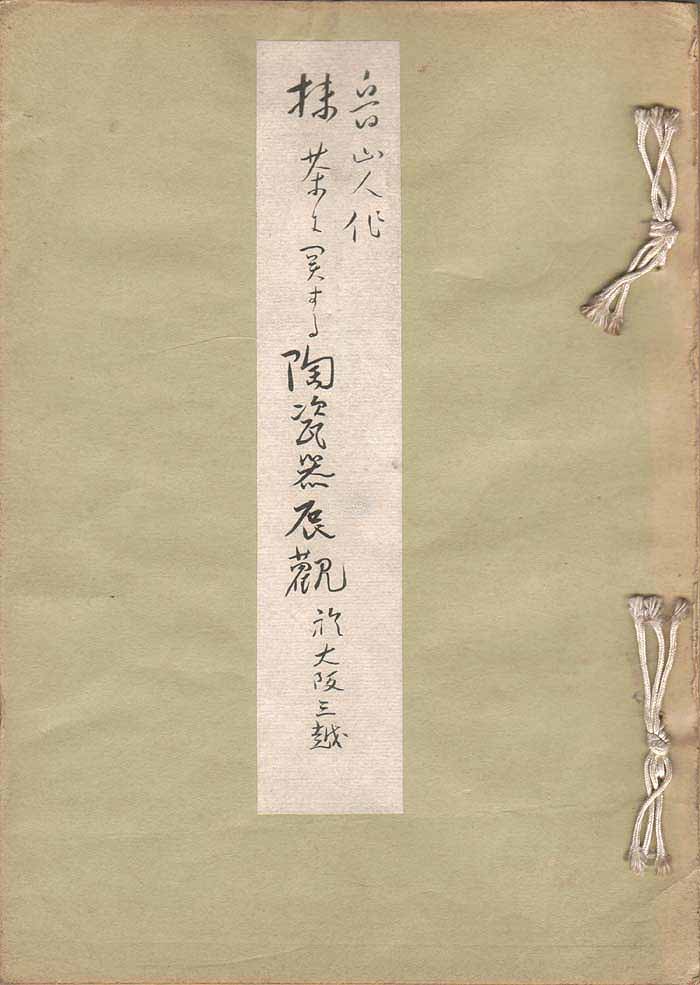 魯山人作
抹茶に関する陶瓷器展觀 於大阪三越